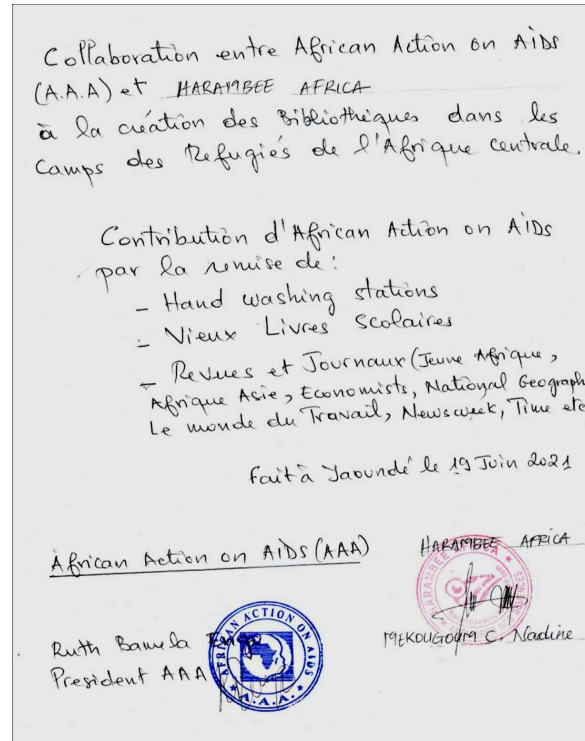 Collaboration entre African Action on AIDS
(A.A.A) et HARAMBEE AFRICA
à la création des Bibliothèques dans les
Camps des Refugiés de l'Afrique centrale.
Contribution d'African Action on AIDS
par la remise de :
- Hand washing stations
- Vieux Livres Scolaires
- Revues et Journaux (Jeune Afrique,
Afrique Asie, Economists, National Geograph
Le monde du Travail, Newsweek, Time etc
Fait à Yaoundé le 19 Juin 2021
African Action on AIDS (AAA)
HARAMBEE AFRICA
Ruth Bamela Engo
President AAA
AFRICAN ACTION ON AIDS
A.A.A.
MEKOUGOUM C. Nadine